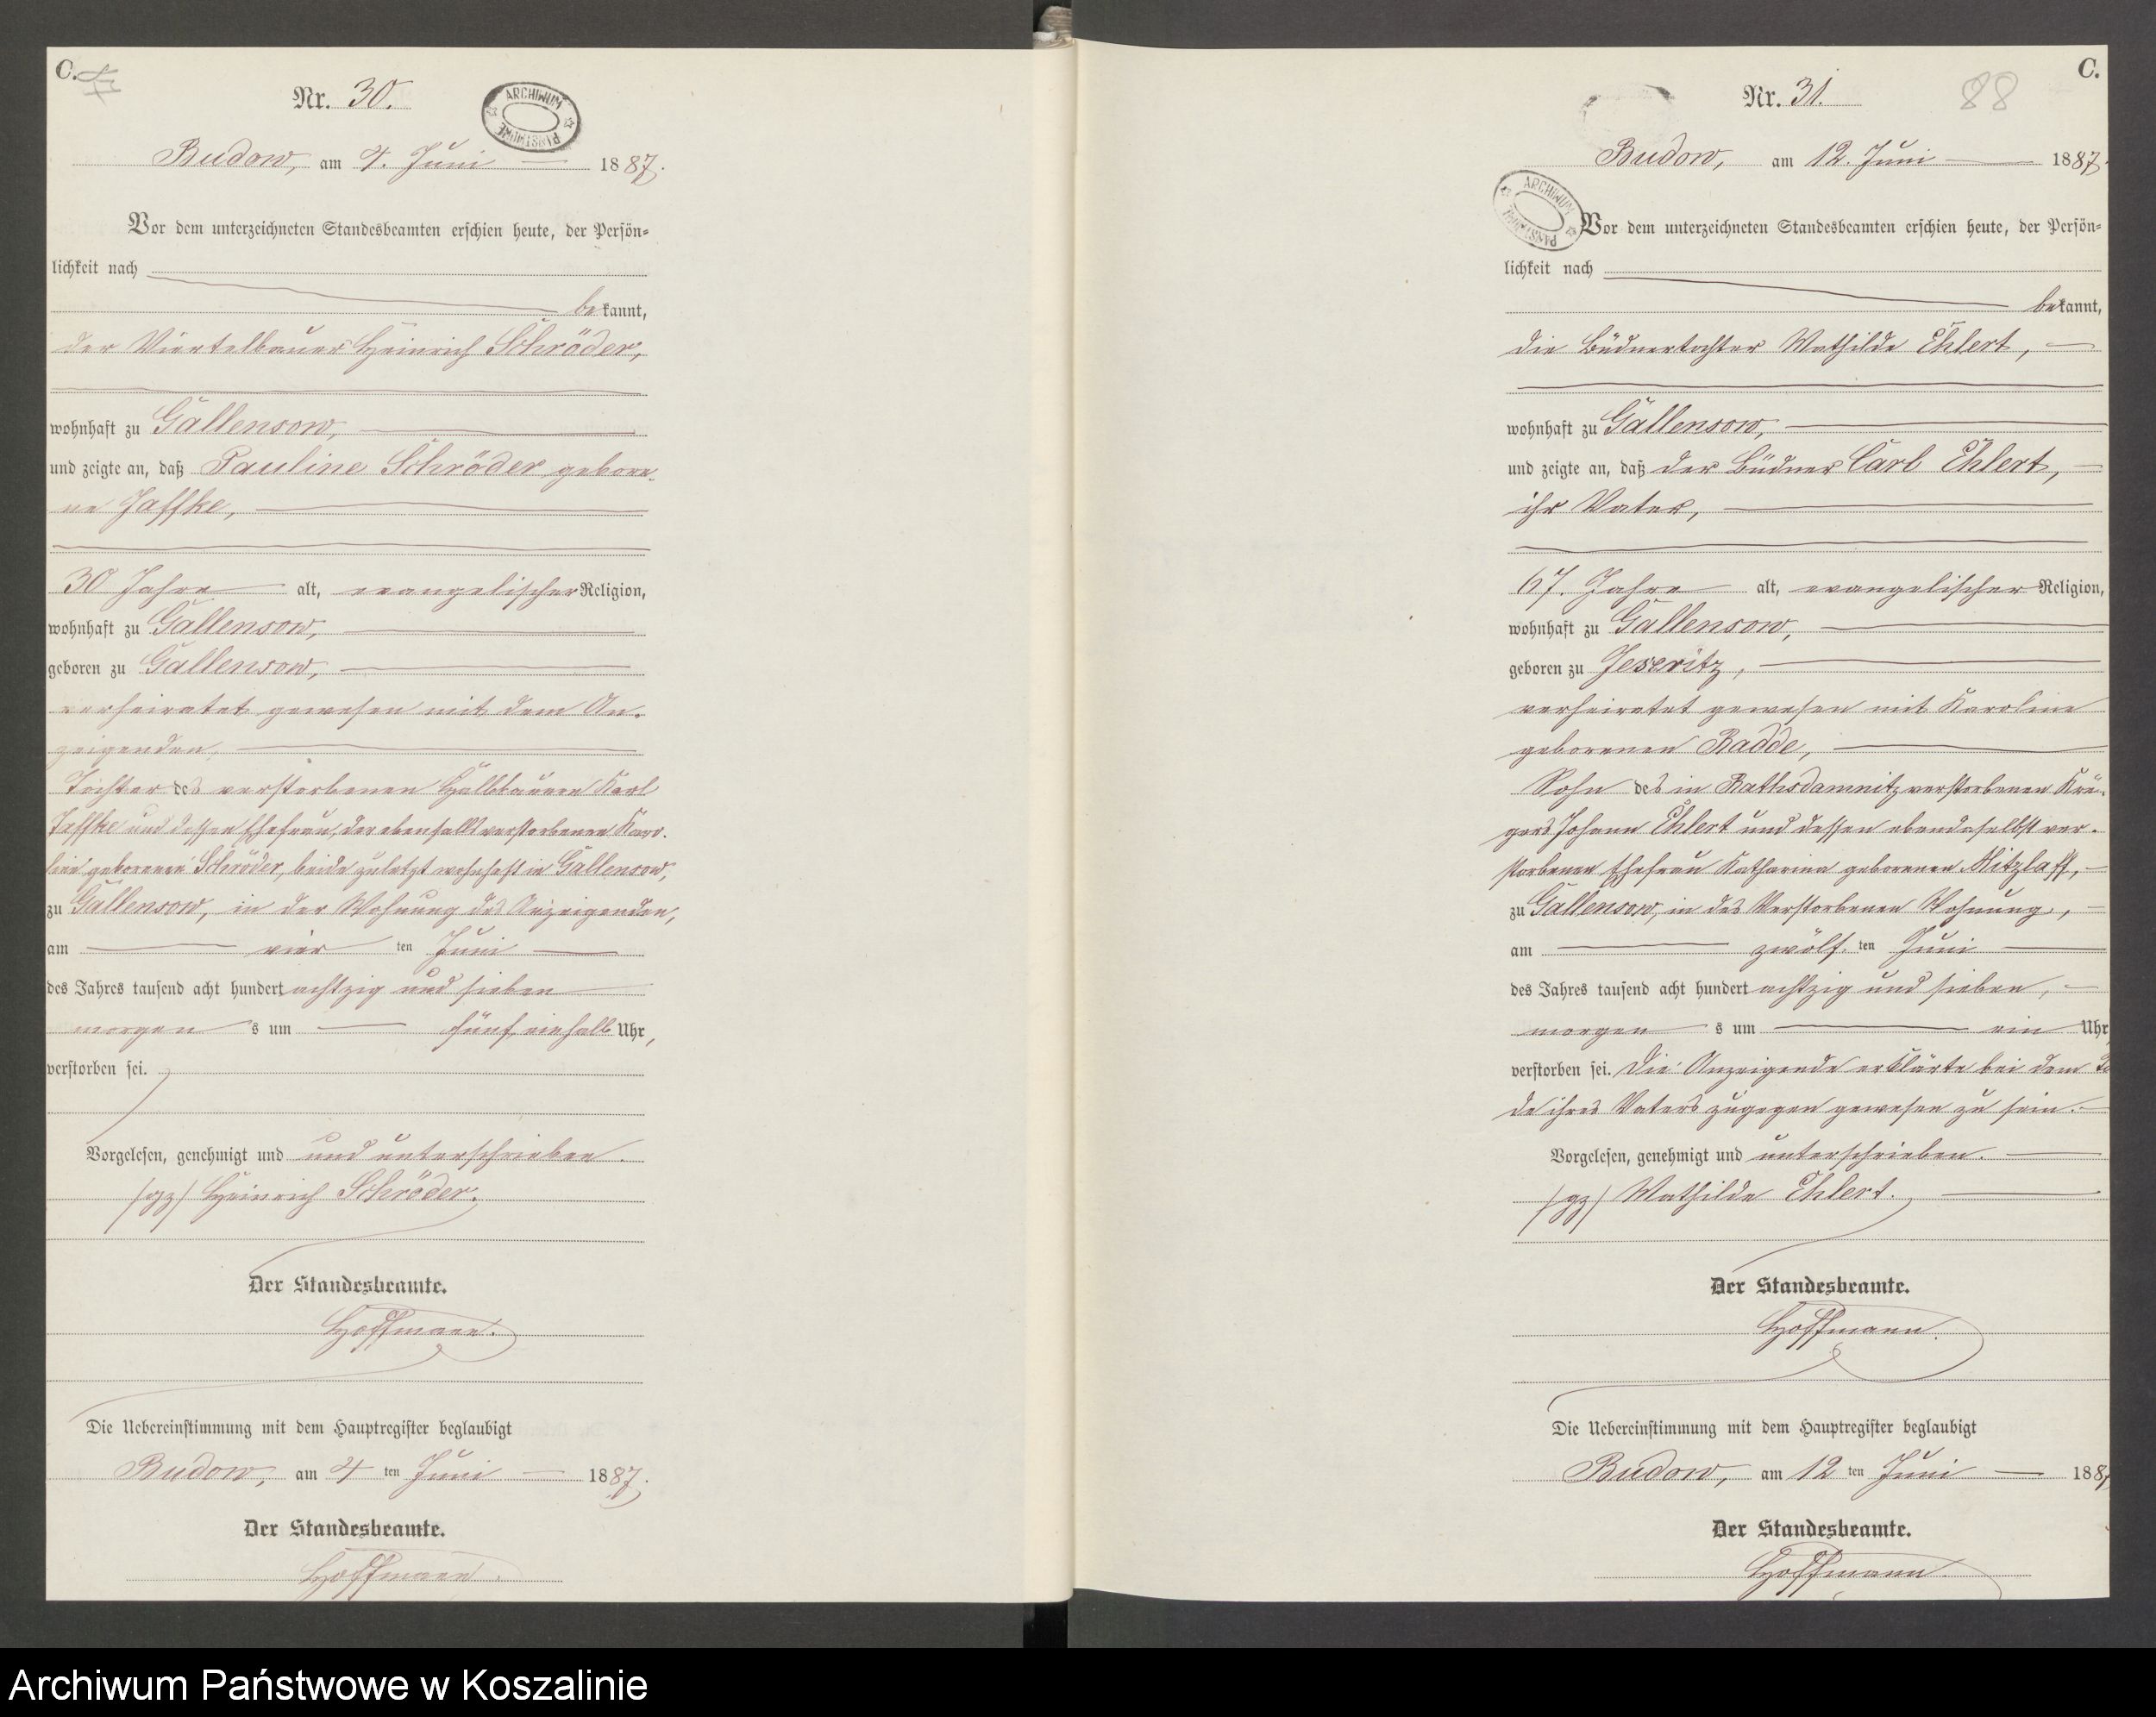 C.
Nr. 30.
ARCHIWUM PAŃSTWOWE
Budow, am 4. Juni 1887.
Vor dem unterzeichneten Standesbeamten erschien heute, der Persön-
lichkeit nach
bekannt,
der Viertelbauer Heinrich Schröder,
wohnhaft zu Gallensow,
und zeigte an, daß Pauline Schröder gebore-
ne Jaffke,
30 Jahre alt, evangelischer Religion,
wohnhaft zu Gallensow,
geboren zu Gallensow,
verheiratet gewesen mit dem An-
zeigenden,
Tochter des verstorbenen Halbbauern Karl
Jaffke und dessen Ehefrau, der ebenfalls verstorbenen Karo-
line geborenen Schröder, beide zuletzt wohnhaft in Gallensow,
zu Gallensow, in der Wohnung des Anzeigenden,
am vier ten Juni
des Jahres tausend acht hundert achtzig und sieben
morgen s um fünf einhalb Uhr,
verstorben sei.
Vorgelesen, genehmigt und und unterschrieben.
(gz) Heinrich Schröder.
Der Standesbeamte.
Hoffmann.
Die Uebereinstimmung mit dem Hauptregister beglaubigt
Budow, am 4 ten Juni 1887.
Der Standesbeamte.
Hoffmann.
C.
Nr. 31.
88
Budow, am 12. Juni 1887
ARCHIWUM PAŃSTWOWE
Vor dem unterzeichneten Standesbeamten erschien heute, der Persön-
lichkeit nach
bekannt,
die Büdnertochter Mathilde Ehlert,
wohnhaft zu Gallensow,
und zeigte an, daß der Büdner Carl Ehlert,
ihr Vater,
67. Jahre alt, evangelischer Religion,
wohnhaft zu Gallensow,
geboren zu Jeseritz,
verheiratet gewesen mit Karoline
geborenen Radde,
Sohn des in Rathsdamnitz verstorbenen Krü-
gers Johann Ehlert und dessen ebendaselbst ver-
storbenen Ehefrau Katharina geborenen Mitzlaff,
zu Gallensow, in des Verstorbenen Wohnung,
am zwölf ten Juni
des Jahres tausend acht hundert achtzig und sieben,
morgen s um ein Uhr
verstorben sei. Die Anzeigende erklärte bei dem To
de ihres Vaters zugegen gewesen zu sein.
Vorgelesen, genehmigt und unterschrieben.
(gz) Mathilde Ehlert.
Der Standesbeamte.
Hoffmann.
Die Uebereinstimmung mit dem Hauptregister beglaubigt
Budow, am 12 ten Juni 188
Der Standesbeamte.
Hoffmann.
Archiwum Państwowe w Koszalinie